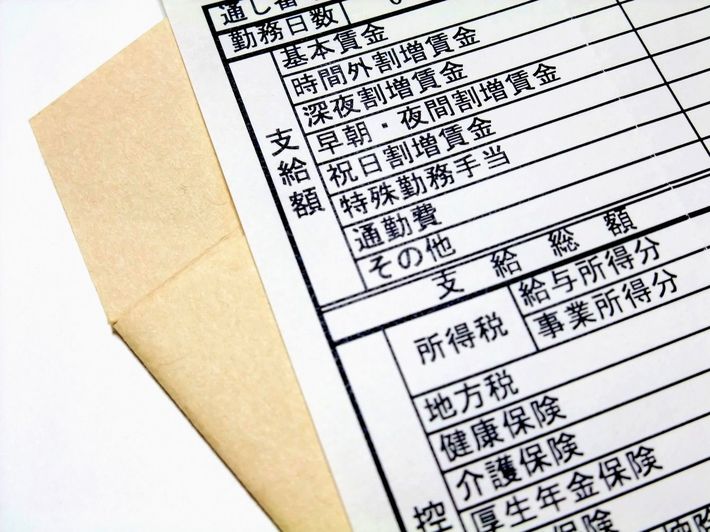 通し番
勤務日数
支給額
基本賃金
時間外割増賃金
深夜割増賃金
早朝・夜間割増賃金
祝日割増賃金
特殊勤務手当
通勤費
その他
支給総額
控
所得税
給与所得分
事業所得分
地方税
健康保険
介護保険
厚生年金保険